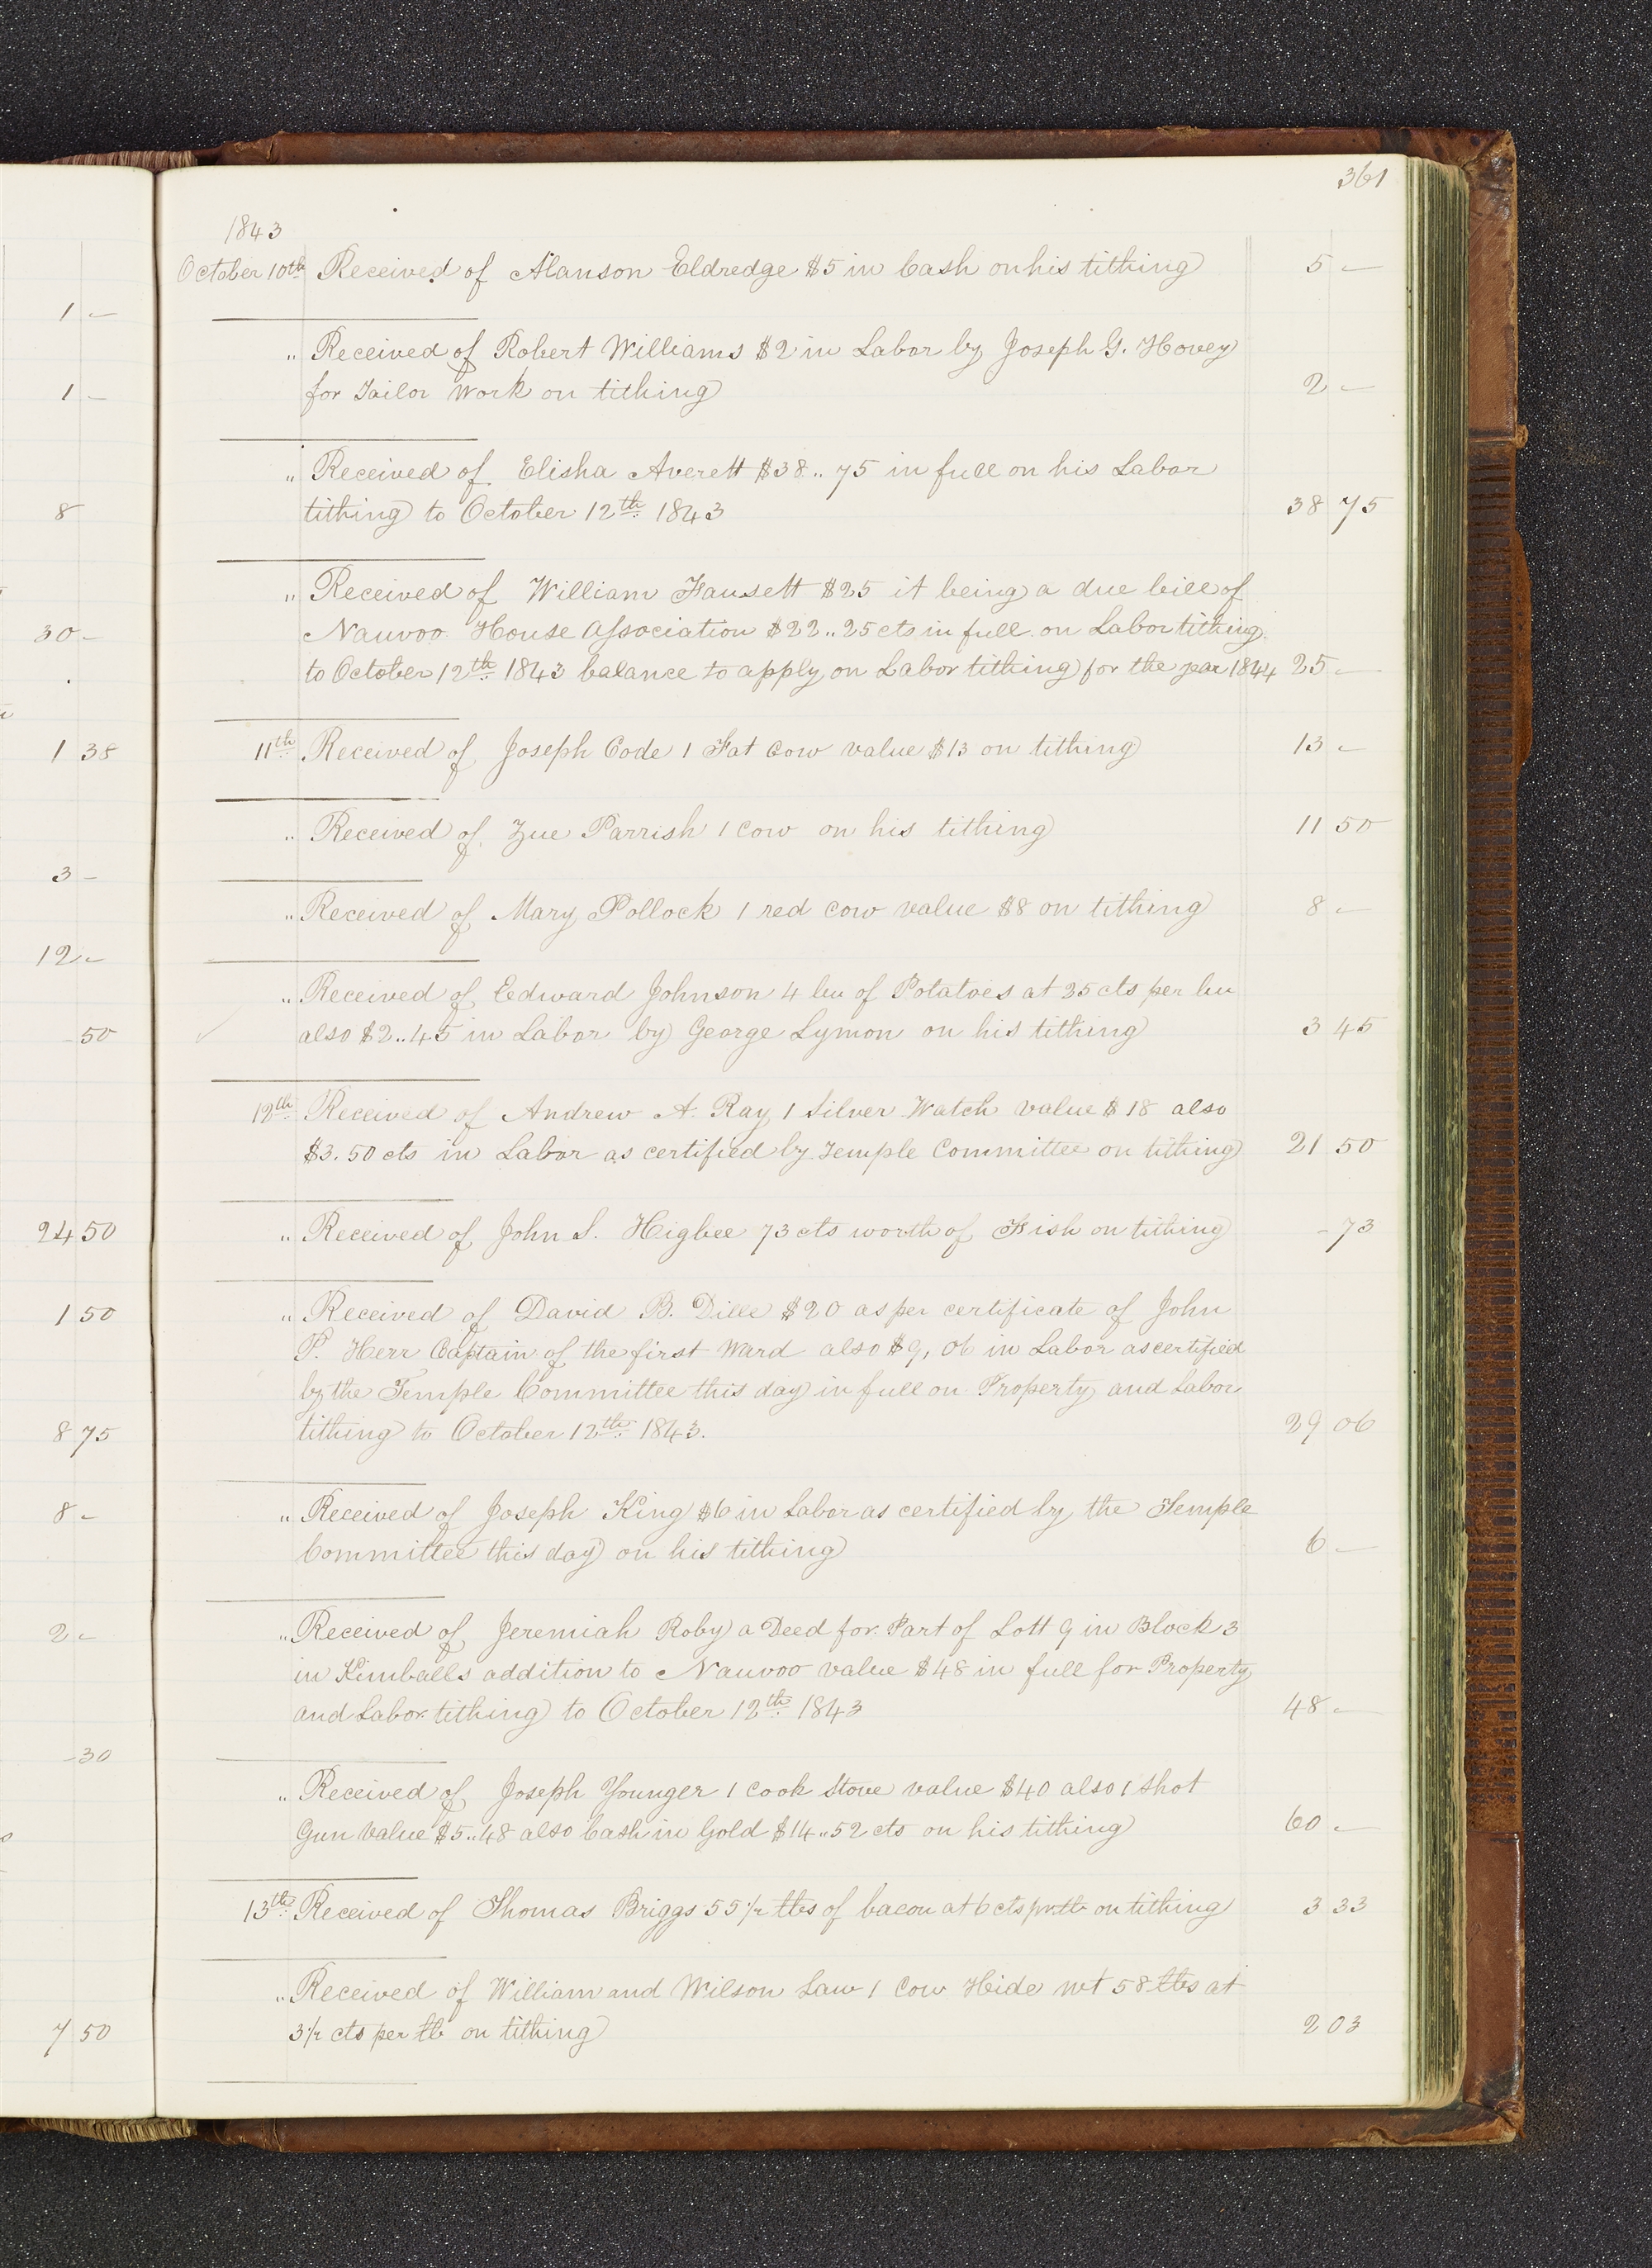 361
1843
October 10th Received of Alanson Eldredge $5 in Cash on his tithing 5 -
" Received of Robert Williams $2 in Labor by Joseph G. Hovey
for Tailor Work on tithing 2 -
" Received of Elisha Averett $38.. 75 in full on his Labor
tithing to October 12th 1843 38 75
" Received of William Fausett $25 it being a due bill of
Nauvoo House Association $22..25 cts in full on Labor tithing
to October 12th 1843 balance to apply on Labor tithing for the year 1844 25 -
11th Received of Joseph Code 1 Fat Cow value $13 on tithing 13 -
" Received of Zue Parrish 1 Cow on his tithing 11 50
" Received of Mary Pollock 1 red Cow value $8 on tithing 8 -
" Received of Edward Johnson 4 bu of Potatoes at 25 cts per bu
also $2..45 in Labor by George Lymon on his tithing 3 45
12th Received of Andrew A. Ray 1 Silver Watch value $18 also
$3.50 cts in Labor as certified by Temple Committee on tithing 21 50
" Received of John S. Higbee 73 cts worth of Fish on tithing - 73
" Received of David B. Dille $20 as per certificate of John
P. Herr Captain of the first Ward also $9, 06 in Labor as certified
by the Temple Committee this day in full on Property and Labor
tithing to October 12th 1843. 29 06
" Received of Joseph King $6 in Labor as certified by the Temple
Committee this day on his tithing 6 -
" Received of Jeremiah Roby a Deed for Part of Lott 9 in Block 3
in Kimballs addition to Nauvoo value $48 in full for Property
and Labor tithing to October 12th 1843 48 -
" Received of Joseph Younger 1 Cook Stove value $40 also 1 Shot
Gun value $5..48 also Cash in Gold $14..52 cts on his tithing 60 -
13th Received of Thomas Briggs 55 1/2 lbs of bacon at 6 cts pr lb on tithing 3 33
" Received of William and Wilson Law 1 Cow Hide wt 58 lbs at
3 1/2 cts per lb on tithing 2 03
1 -
1 -
8
30 -
1 38
3 -
12 -
- 50
24 50
1 50
8 75
8 -
2 -
- 30
7 50